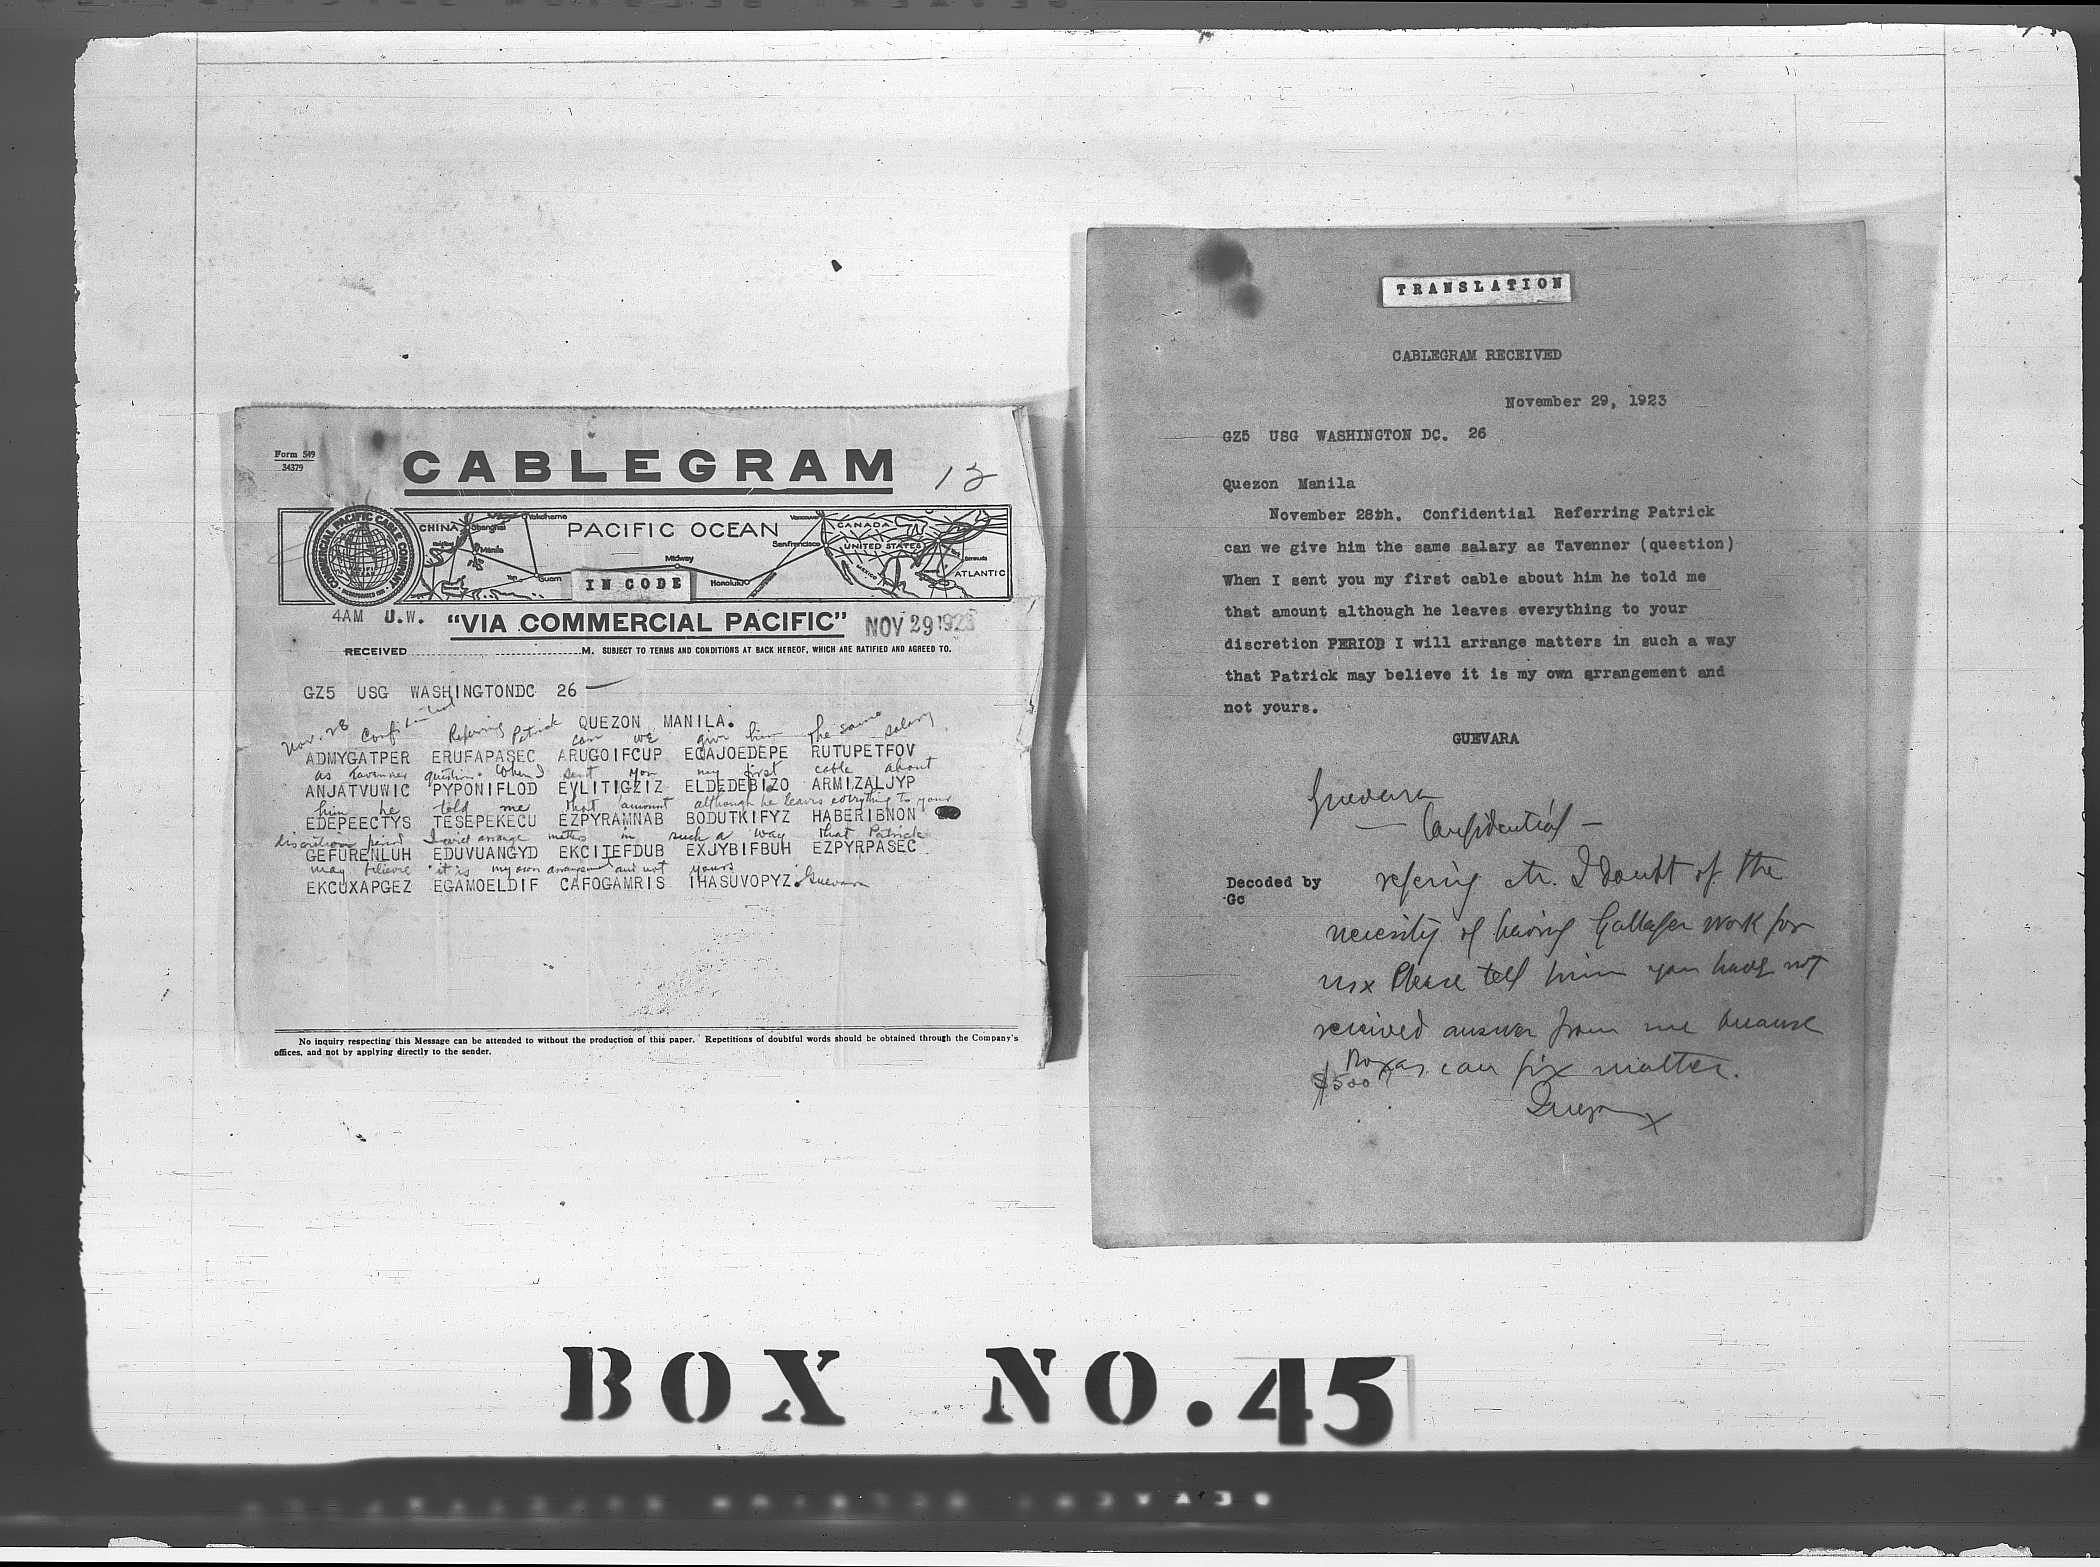 Form 549
34379
CABLEGRAM
COMMERCIAL PACIFIC CABLE COMPANY
INCORPORATED 1901
CHINA
Shanghai
Yokohama
PACIFIC OCEAN
Vancouver
CANADA
San Francisco
UNITED STATES
Manila
Midway
MEXICO
Bermuda
ATLANTIC
Yap
Guam
Honolulu
IN CODE
4AM U.W.
"VIA COMMERCIAL PACIFIC"
NOV 29 1923
RECEIVED M. SUBJECT TO TERMS AND CONDITIONS AT BACK HEREOF, WHICH ARE RATIFIED AND AGREED TO.
GZ5 USG WASHINGTONDC 26
QUEZON MANILA.
Nov. 28 Confidential Referring Patrick can we give him the same salary
ADMYGATPER ERUFAPASEC ARUGOIFCUP EGAJOEDEPE RUTUPETFOV
as Tavenner question. When I sent you my first cable about
ANJATVUWIC PYPONIFLOD EYLITIGZIZ ELDEDEBIZO ARMIZALJYP
him he told me that amount although he leaves everything to your
EDEPEECTYS TESEPEKECU EZPYRAMNAB BODUTKIFYZ HABERIBNON
discretion period I will arrange matters in such a way that Patrick
GEFURENLUH EDUVUANGYD EKCITEFDUB EXJYBIFBUH EZPYRPASEC
may believe it is my own arrangement and not yours
EKCUXAPGEZ EGAMOELDIF CAFOGAMRIS IHASUVOPYZ. Guevara
No inquiry respecting this Message can be attended to without the production of this paper. Repetitions of doubtful words should be obtained through the Company's
offices, and not by applying directly to the sender.
TRANSLATION
CABLEGRAM RECEIVED
November 29, 1923
GZ5 USG WASHINGTON DC. 26
Quezon Manila
November 28th. Confidential Referring Patrick
can we give him the same salary as Tavenner (question)
When I sent you my first cable about him he told me
that amount although he leaves everything to your
discretion PERIOD I will arrange matters in such a way
that Patrick may believe it is my own arrangement and
not yours.
GUEVARA
Guevara
— Confidential —
Decoded by
Gc
refering etc. I doubt of the
necesity of having Gallager work for
us x Please tell him you have not
received answer from me because
Roxas can fix matter.
$500
Quezon x
BOX NO. 45